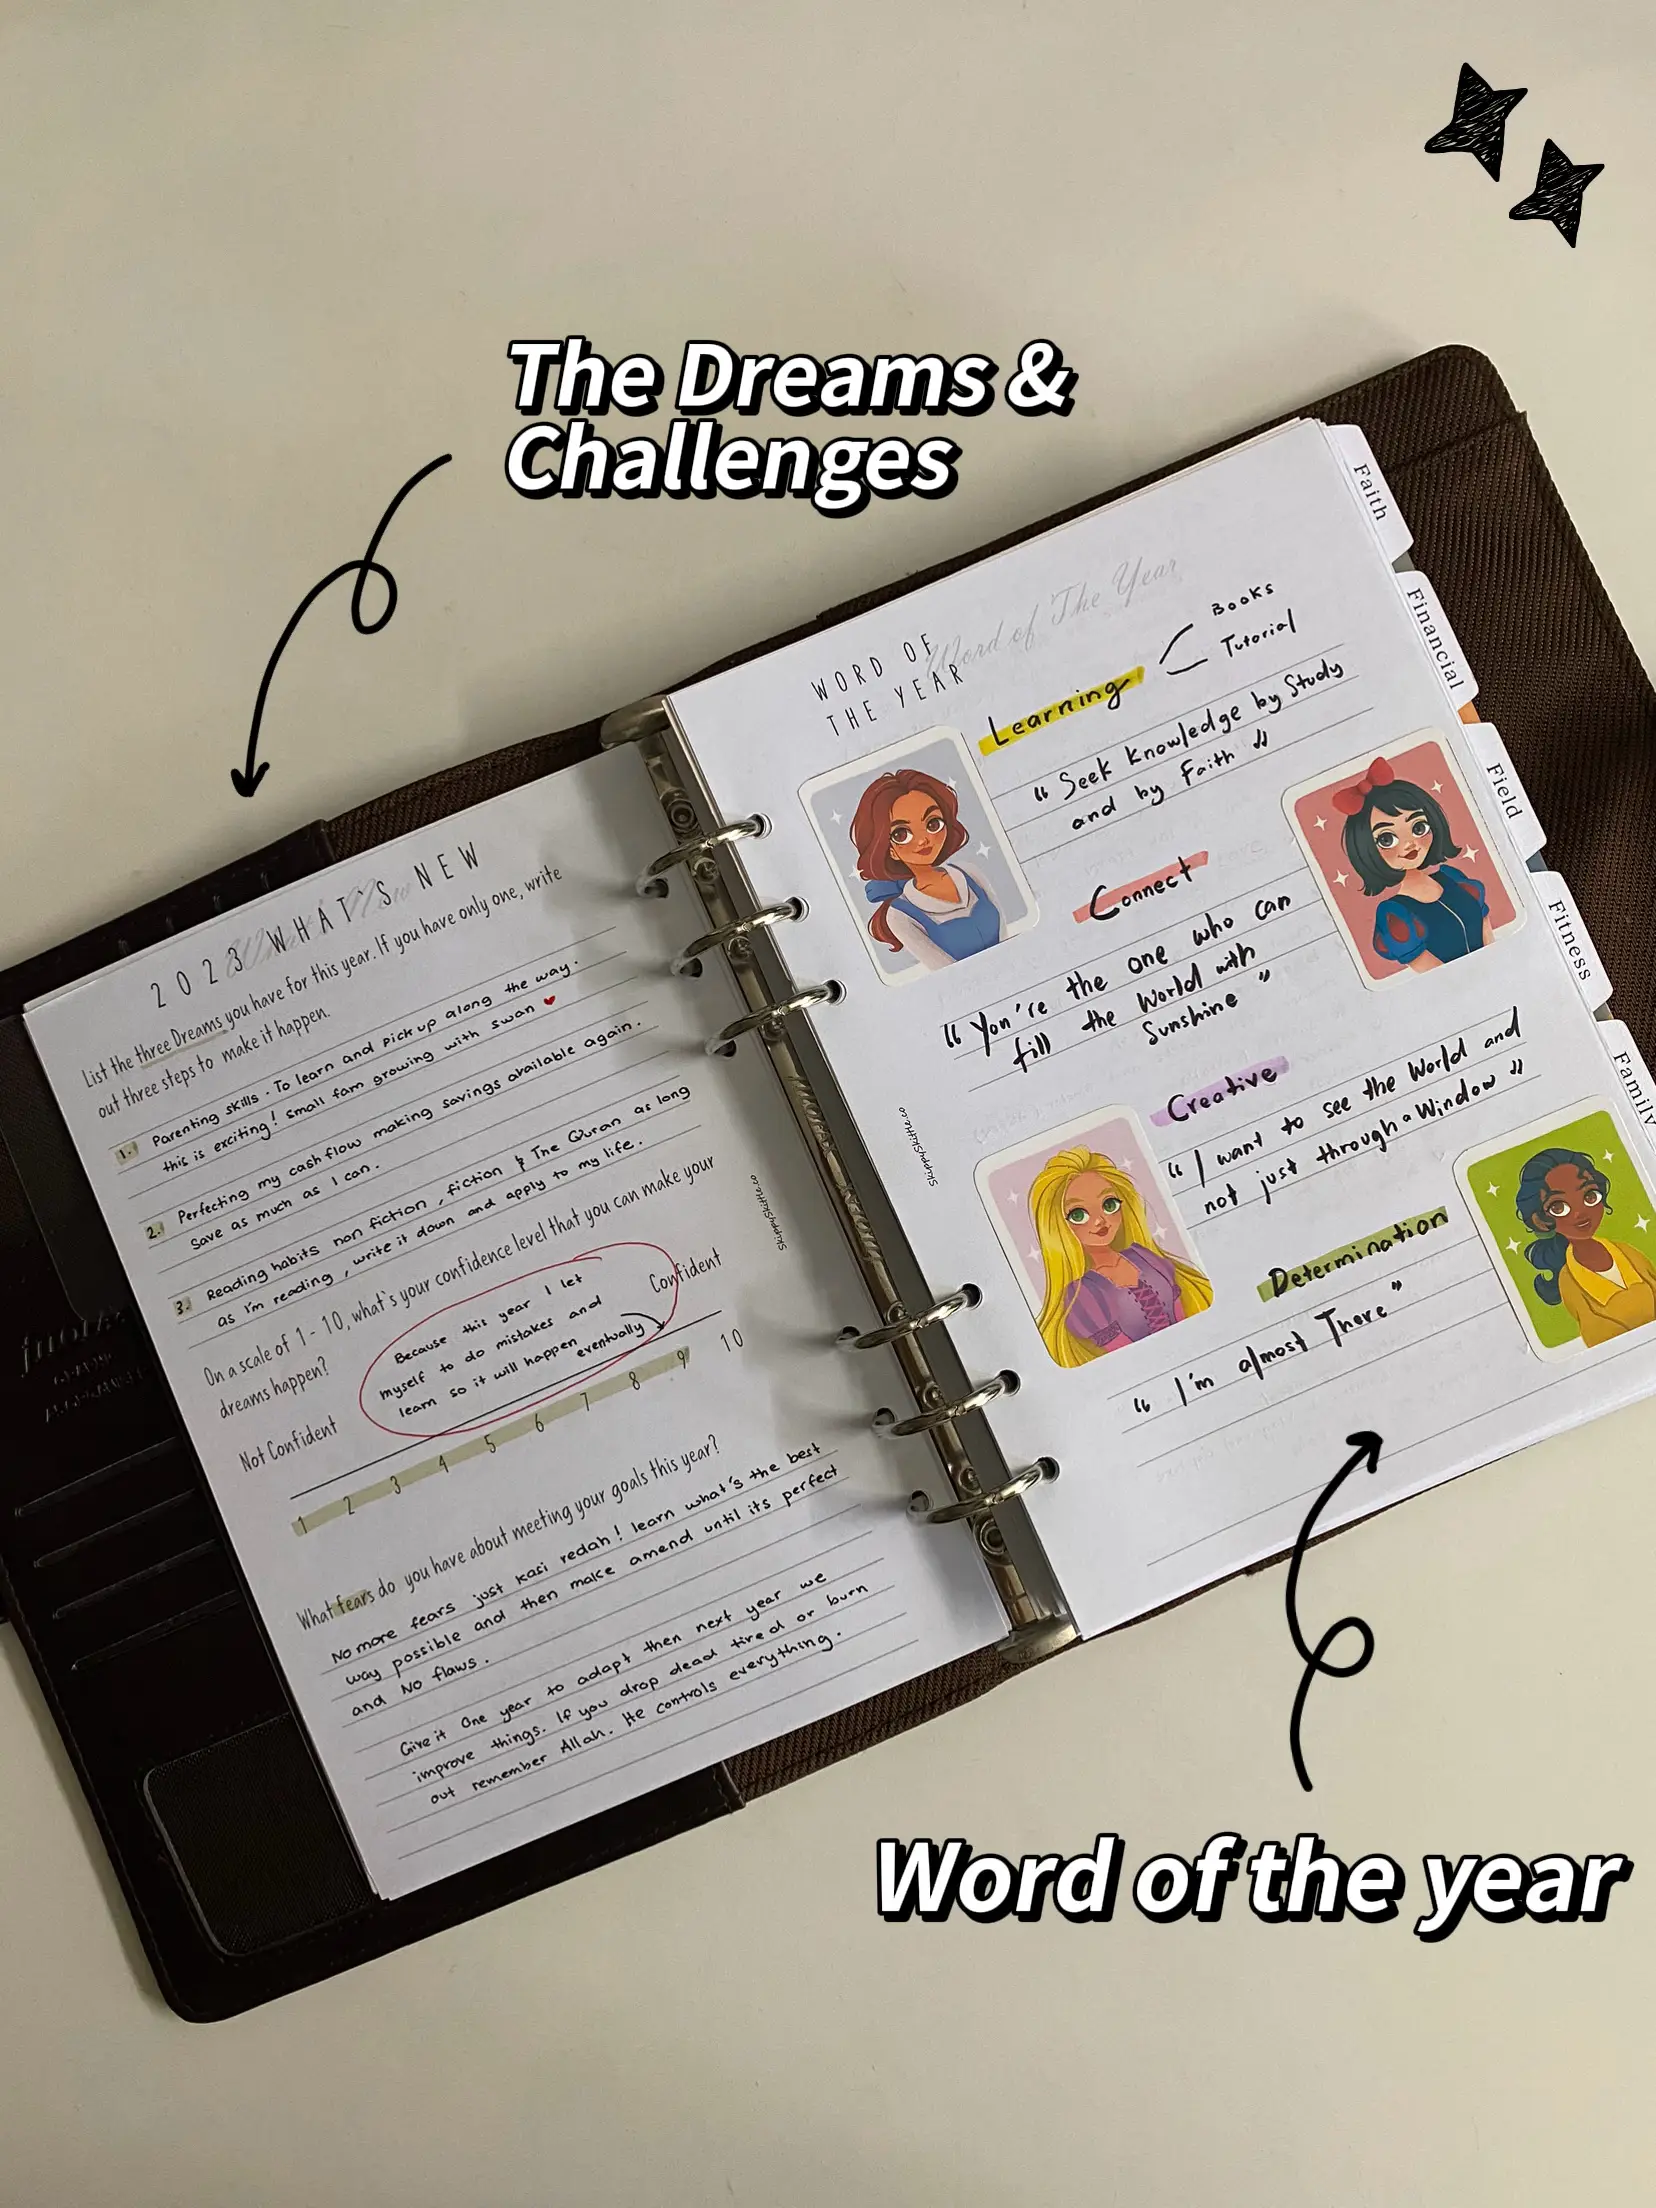 The Dreams &
Challenges
2023 WHAT'S NEW
List the three Dreams you have for this year. If you have only one, write
out three steps to make it happen.
1. Parenting skills. To learn and pick up along the way.
this is exciting! Small fam growing with swan ♥
2. Perfecting my cash flow making savings available again.
Save as much as I can.
3. Reading habits non fiction, fiction & The Quran as long
as I'm reading, write it down and apply to my life.
On a scale of 1 - 10, what's your confidence level that you can make your
dreams happen?
Because this year I let
myself to do mistakes and
learn so it will happen eventually
Not Confident
Confident
1 2 3 4 5 6 7 8 9 10
What fears do you have about meeting your goals this year?
No more fears just kasi redah! learn what's the best
way possible and then make amend until its perfect
and No flaws.
Give it One year to adapt then next year we
improve things. If you drop dead tired or burn
out remember Allah. He controls everything.
SkippySkittle.co
WORD OF
THE YEAR
Word of The Year
Learning
Books
Tutorial
"Seek Knowledge by Study
and by Faith"
Connect
"You're the one who can
fill the World with
Sunshine"
Creative
"I want to see the World and
not just through a Window"
Determination
"I'm almost There"
SkippySkittle.co
Faith
Financial
Field
Fitness
Family
Word of the year